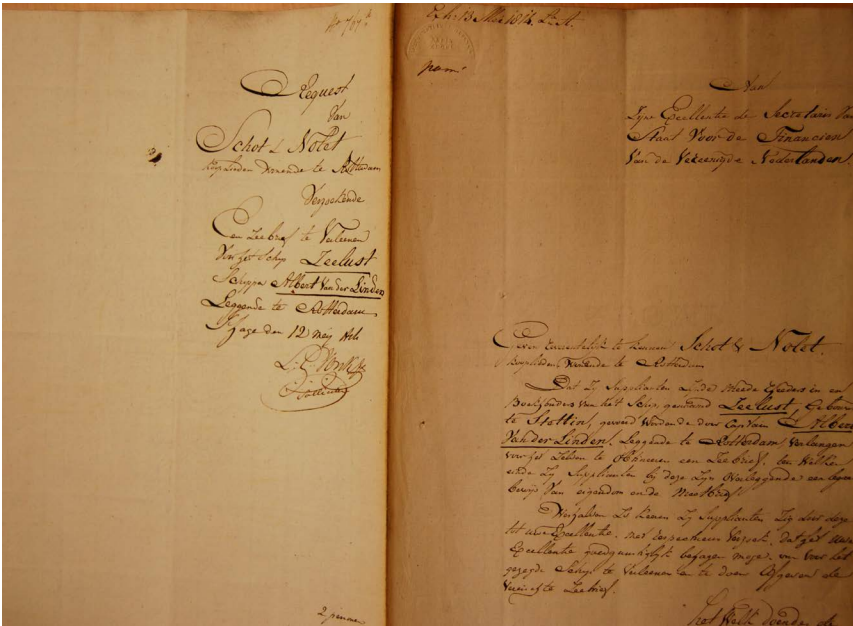 Request
Van
Schot & Nolet
Kooplieden Wonende te Rotterdam
Verzoekende
Een Zeebrief te Verleenen
Voor het Schip Zeelust
Schipper Albert Van der Linden
Leggende te Rotterdam
Hage den 12 Meij
2 pannen
Exh: 13 Mei 1814
Aan
Zyne Excellentie de Secretaris Van
Staat Voor de Financien
Van de Vereenigde Nederlanden.
Geven te kennen Schot & Nolet.
Kooplieden, Wonende te Rotterdam
Dat Zy Supplianten Zynde Meede Rheeders in en
Boekhouders Van het Schip, genaamd Zeelust, Gebouwd
te Stettin, gevoerd Wordende door Capitain Albert
Van der Linden, Leggende te Rotterdam, Verlangen
voor het Zelve te Obtineeren een Zeebrief, ten Welken
einde Zy Supplianten by deze Zyn Overleggende een
bewys Van eigendom en de Meetbrief
Zy Supplianten Zig door deze
tot uwe Excellentie, met Verzoek, dat het uwe
Excellentie goedgunstiglyk behagen moge, om voor het
gezegde Schip te Verleenen en te doen Afgeven de
Vereischte Zeebrief.
het Welk doende